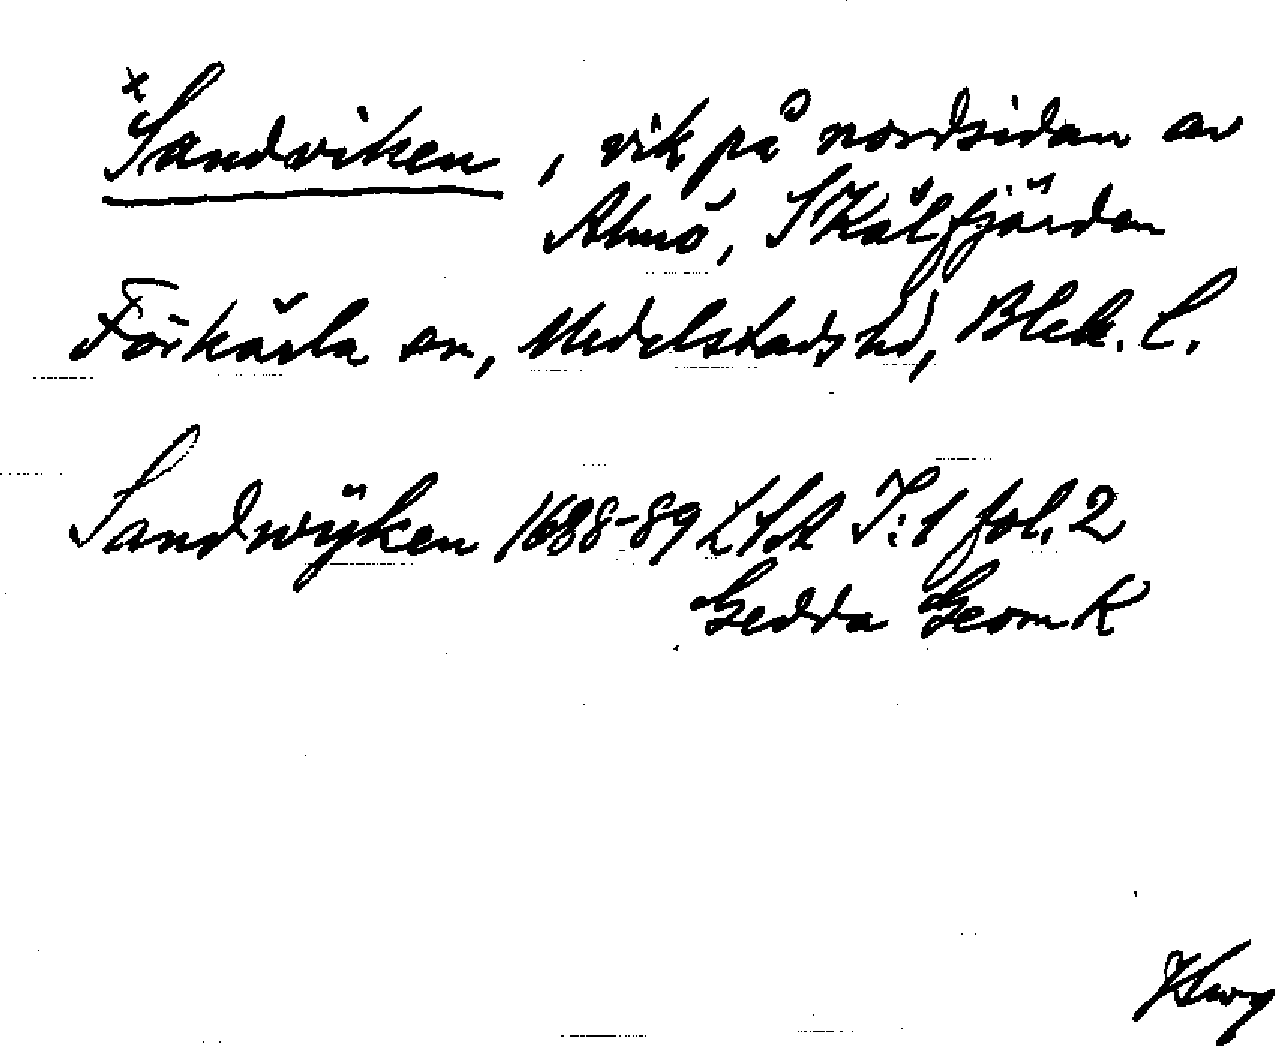 *Sandviken, vik på nordsidan av
Almö, S Kälfjärden
Förkärla sn, Medelstads hd, Blek. l.
Sandwÿken 1688-89 LSA I:1 fol. 2
Gedda Geom K